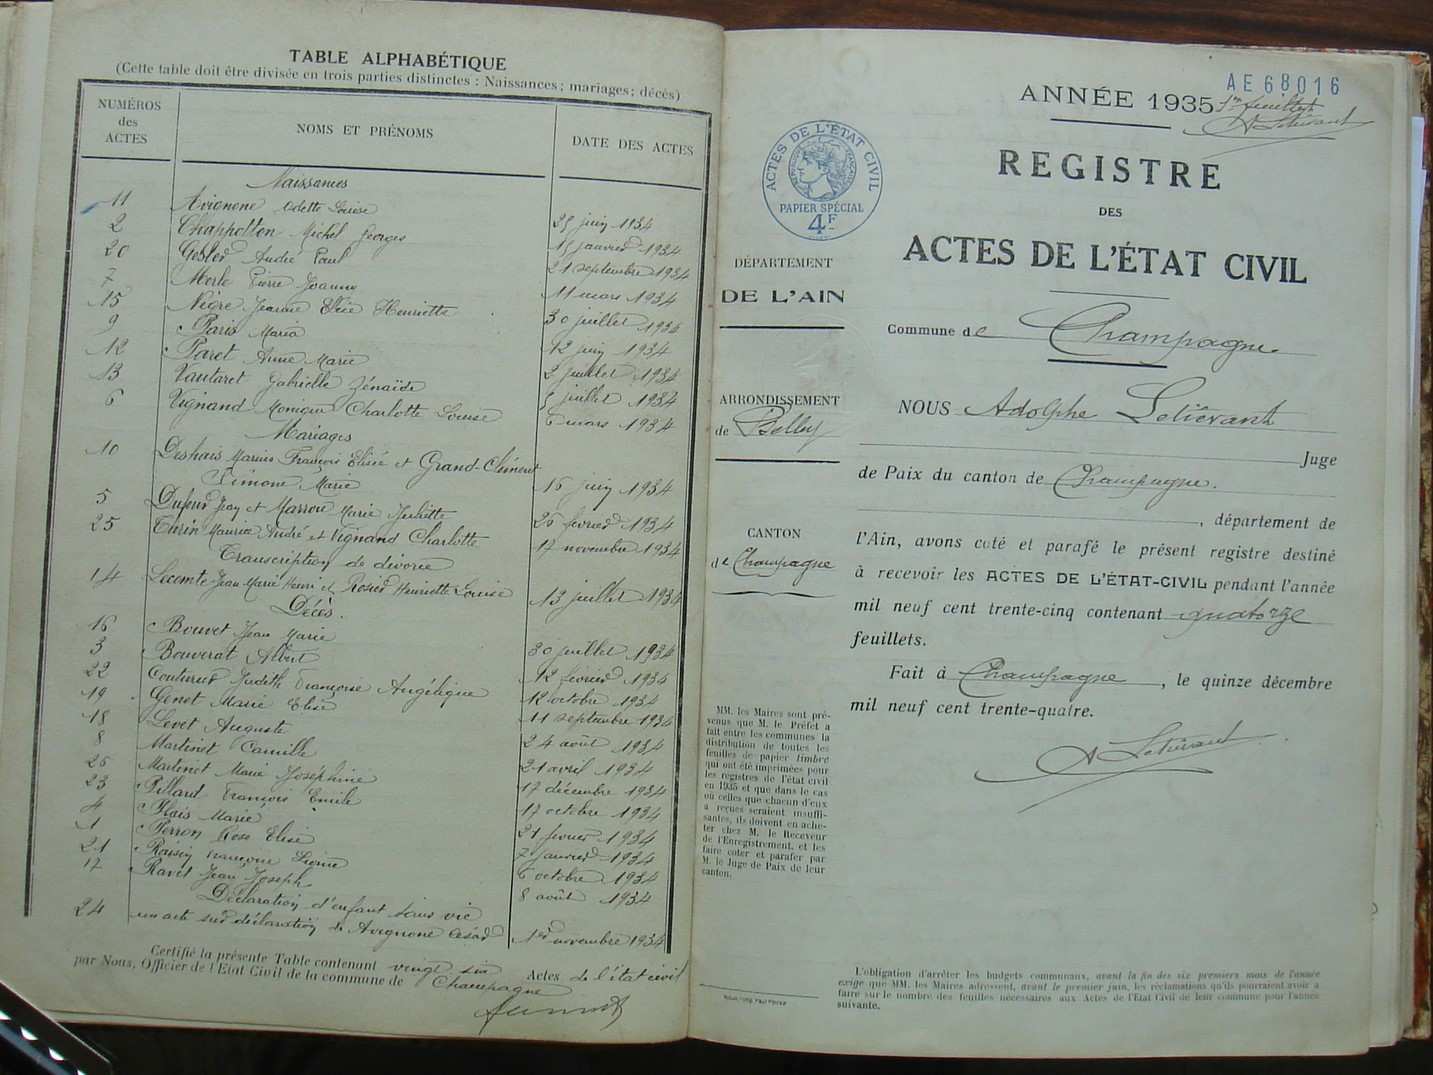 TABLE ALPHABÉTIQUE
(Cette table doit être divisée en trois parties distinctes : Naissances; mariages; décès)
NUMÉROS des ACTES
NOMS ET PRÉNOMS
DATE DES ACTES
Naissances
11 Avignone Odette Louise 25 juin 1934
2 Chappellon Michel Georges 15 janvier 1934
20 Goblet André Paul 21 septembre 1934
7 Merle Pierre Joanny 11 mars 1934
15 Nègre Jeanne Elise Henriette 30 juillet 1934
9 Paris Maria 12 juin 1934
12 Paret Anne Marie 2 juillet 1934
13 Vautaret Gabrielle Zénaïde 5 juillet 1934
6 Vignand Monique Charlotte Louise 6 mars 1934
Mariages
10 Deshais Marius François Elisée et Grand-Clément
Simone Marie 16 juin 1934
5 Dufour Jean et Marron Marie Juliette 26 février 1934
25 Turin Maurice André et Vignand Charlotte 17 novembre 1934
Transcription de divorce
14 Lecomte Jean Marie Henri et Rosier Henriette Louise 13 juillet 1934
Décès.
16 Bouvet Jean Marie 30 juillet 1934
3 Bouverat Albert 12 février 1934
22 Couturier Judith Françoise Angélique 12 octobre 1934
19 Genet Marie Elise 11 septembre 1934
18 Levet Auguste 24 août 1934
8 Martinet Camille 21 avril 1934
26 Martinet Marie Joséphine 17 décembre 1934
23 Pillard François Emile 17 octobre 1934
4 Plais Marie 21 février 1934
1 Perron Rose Elise 7 janvier 1934
21 Françoise 6 octobre 1934
17 Ravet Jean Joseph 8 août 1934
Déclaration d'enfant sans vie
24 un acte sur déclaration de Avignone César 1er novembre 1934
Certifié la présente Table contenant vingt six Actes de l'état civil
par Nous, Officier de l'Etat Civil de la commune de Champagne
AE68016
ANNÉE 1935
1er feuillet
A Letiévant
REGISTRE
DES
ACTES DE L'ÉTAT CIVIL
ACTES DE L'ÉTAT CIVIL
RÉPUBLIQUE FRANÇAISE
PAPIER SPÉCIAL
4F
DÉPARTEMENT
DE L'AIN
ARRONDISSEMENT
de Belley
CANTON
de Champagne
Commune de Champagne
NOUS Adolphe Letiévant
Juge
de Paix du canton de Champagne.
, département de
l'Ain, avons coté et parafé le présent registre destiné
à recevoir les ACTES DE L'ÉTAT-CIVIL pendant l'année
mil neuf cent trente-cinq contenant quatorze
feuillets.
Fait à Champagne, le quinze décembre
mil neuf cent trente-quatre.
A Letiévant
MM. les Maires sont pré-
venus que M. le Préfet a
fait entre les communes la
distribution de toutes les
feuilles de papier timbré
qui ont été imprimées pour
les registres de l'état civil
en 1935 et que dans le cas
où celles que chacun d'eux
a reçues seraient insuffi-
santes, ils doivent en ache-
ter chez M. le Receveur
de l'Enregistrement, et les
faire coter et parafer par
M. le Juge de Paix de leur
canton.
L'obligation d'arrêter les budgets communaux, avant la fin des six premiers mois de l'année
exige que MM. les Maires adressent, avant le premier juin, les réclamations qu'ils pourraient avoir à
faire sur le nombre des feuilles nécessaires aux Actes de l'Etat Civil de leur commune pour l'année
suivante.